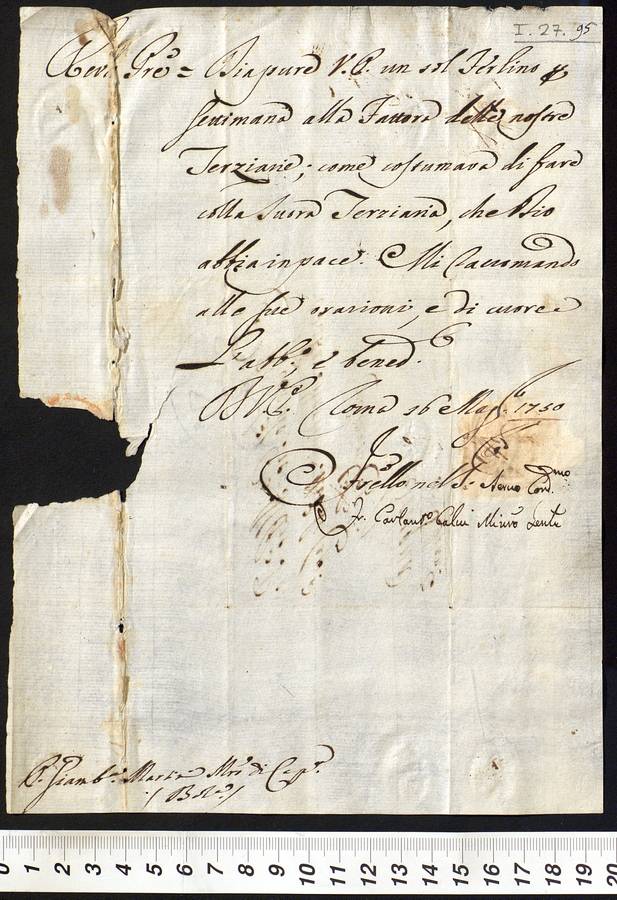 I. 27. 95
Rev. Pre = Dia pure V. P. un sol Perlino p
settimana alla Fattora delle nostre
Terziarie; come costumava di fare
colla Suora Terziaria, che Dio
abbia in pace. Mi raccomando
alle sue orazioni, e di cuore
L'abb., e bened.
D. V. P. Roma 16 Mag. 1750
Frello nel Sr. Servo
Fr. Carlant.o Calvi Minro Gente
P. Giamb. Martini Mro di Capp.
/ Bola /
0 1 2 3 4 5 6 7 8 9 10 11 12 13 14 15 16 17 18 19 20